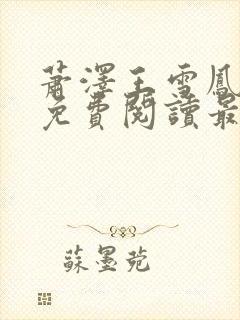 蕭澤王雪鳳
免費閱讀最
蘇墨苑